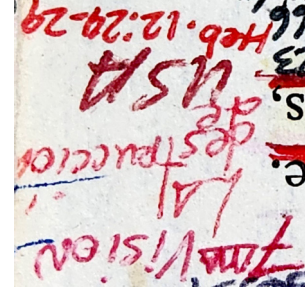 7ma VISION
LA
destruccion
de
USA
Heb. 12:24-29